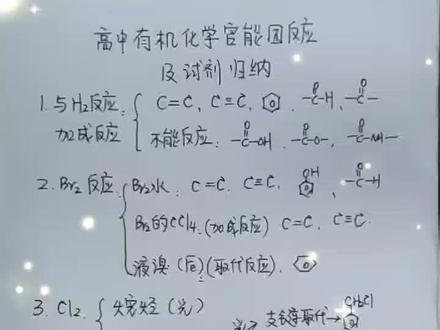 高中有机化学官能团反应
及试剂归纳
1. 与H₂反应: C=C, C≡C, ⌬, -C(=O)-H, -C(=O)-
加成反应 不能反应: -C(=O)-OH, -C(=O)-O-, -C(=O)-NH-
2. Br₂反应 Br₂水: C=C, C≡C, OH, -C(=O)-H
Br₂的CCl₄ (加成反应) C=C, C≡C.
液溴(Fe)(取代反应), ⌬
3. Cl₂. 烷烃(光)
取代→ CH₂Cl